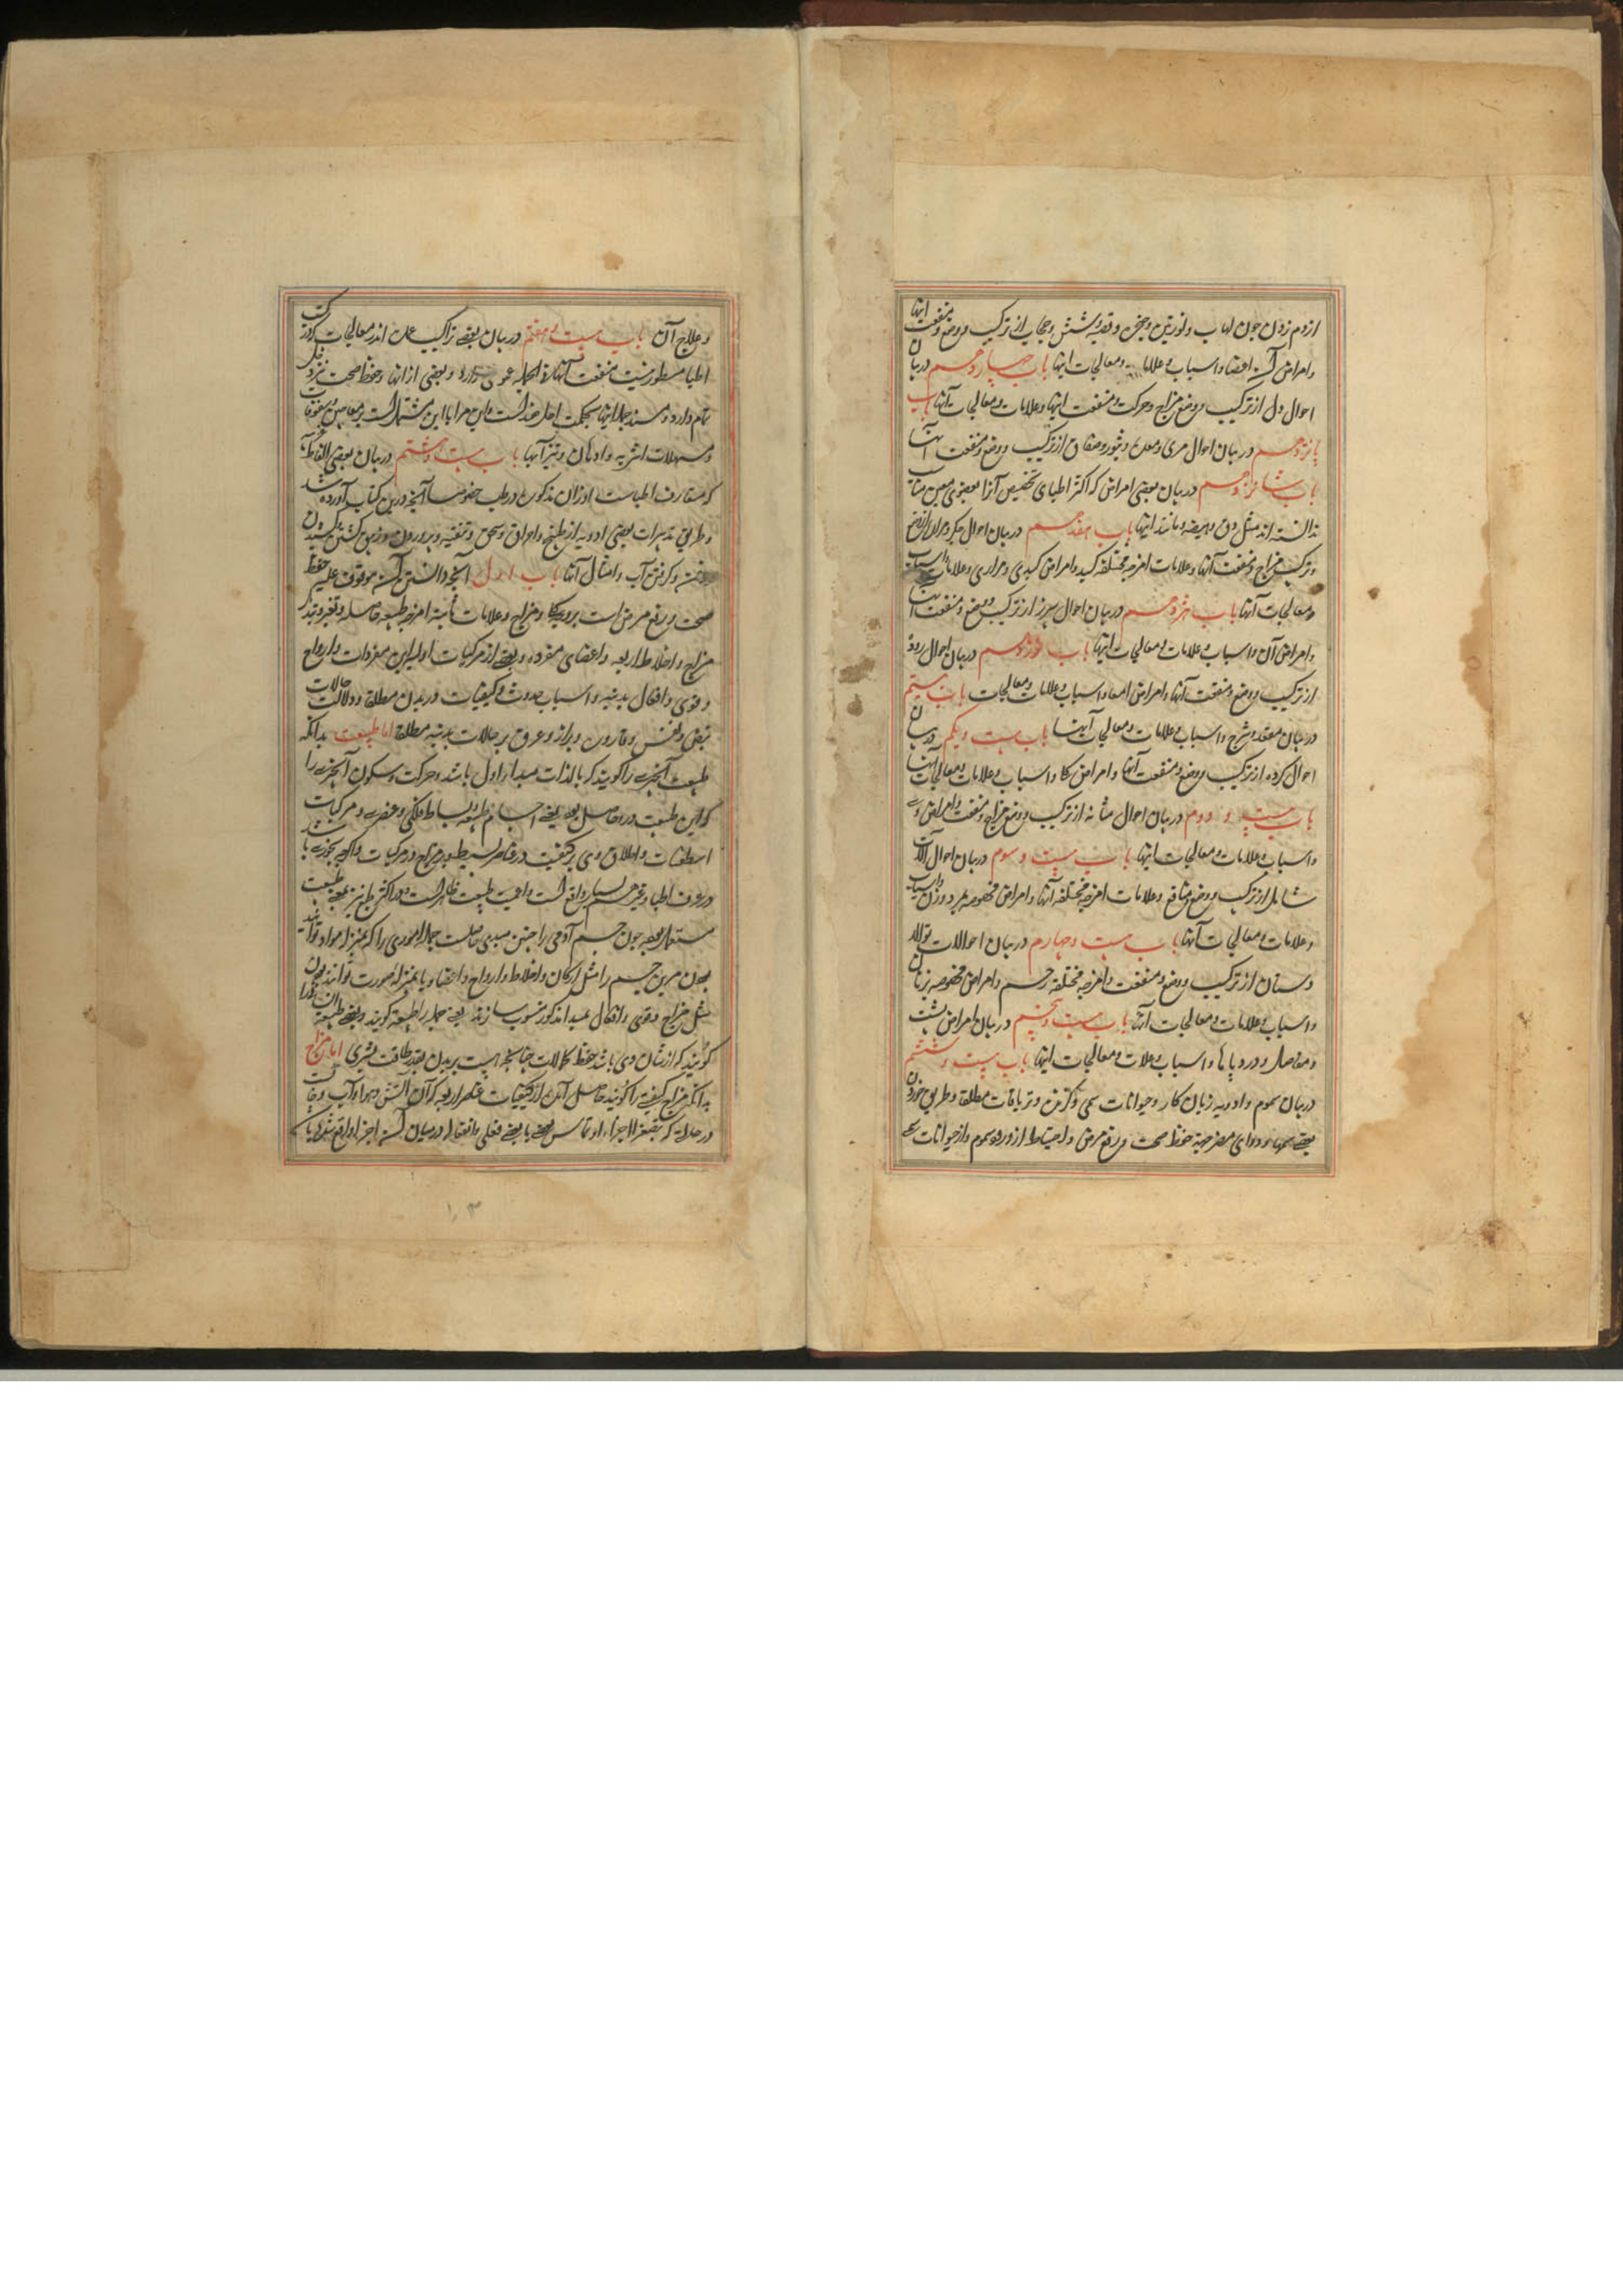 ازدم زدن چون لهاب و لوزتین و حنجره و قصبه و شش و حجاب از ترکیب و وضع و منفعت اینها
و امراض آن اعضا و اسباب و علامات و معالجات اینها باب چهاردهم در بیان
احوال دل از ترکیب و وضع و مزاج و حرکت و منفعت اینها و علامات و معالجات آنها باب
پانزدهم در بیان احوال مری و معده و از ترکیب و وضع و منفعت آنها
باب شانزدهم در بیان بعضی امراض که اکثر اطبای تخصیص آنرا بعضوی معین مناسب
ندانسته‌اند مثل دق و هیضه و مانند اینها باب هفدهم در بیان احوال جگر و مراره از وضع
و ترکیب و مزاج و منفعت آنها و علامات امزجه مختلفه کبد و امراض کبدی و مراری و علامات و اسباب
و معالجات آنها باب هژدهم در بیان احوال سپرز از ترکیب و وضع و منفعت آنها
و امراض آن و اسباب و علامات و معالجات اینها باب نوزدهم در بیان احوال روده
از ترکیب و وضع و منفعت آنها و امراض امعا و اسباب و علامات و معالجات باب بیستم
در بیان مقعد و شرج و اسباب و علامات و معالجات آنها باب بیست و یکم در بیان
احوال کرده از ترکیب و وضع و منفعت آنها و امراض کلا و اسباب و علامات و معالجات آنها
باب بیست و دوم در بیان احوال مثانه از ترکیب و وضع و مزاج و منفعت و امراض وی
و اسباب و علامات و معالجات اینها باب بیست و سوم در بیان احوال آلات
تناسل از ترکیب و وضع و منافع و علامات امزجه مختلفه آنها و امراض مخصوصه بمرد و زن و اسباب
و علامات و معالجات آنها باب بیست و چهارم در بیان احوالات توالد
و پستان از ترکیب و وضع و منفعت و امزجه مختلفه رحم و امراض مخصوصه بزنان
و اسباب و علامات و معالجات آنها باب بیست و پنجم در بیان امراض پشت
و مفاصل و درد پاها و اسباب و علامات و معالجات اینها باب بیست و ششم
در بیان سموم و ادویه زیان کار و حیوانات سمی و گزنده و تریاقات مطلقا و طریق خوردن
بعضی سمها و دوای مضر جهة حفظ صحت و رفع مرض و احتیاط از ورود سموم و از حیوانات سمی
و علاج آن باب بیست و هفتم در بیان بعضی تراکیب عمده اندر معالجات که در کتب
اطبا مسطور نیست منفعت آنها فی الجمله عمومی دارد و بعضی از آنها در حفظ صحت دخل
تمام دارد و مستند جمله اینها بر معاجین و سفوفات
و مسهلات و اشربه و ادهان و نیز آنها باب بیست و هشتم در بیان بعضی الفاظ که
که متعارف اطباست و اوزان مذکوره در طب خصوصا آنچه درین کتاب آورده شد
و طریق تدبیرات بعضی ادویه از طبخ و احراق و سحق و تنقیه و پروردن
و گرفتن آب و امثال آنها باب اول آنچه دانستن آن موقوف علیه حفظ
صحت و رفع مرض است و مزاج و علامات امزجه طبیعه
مزاج و اخلاط اربعه و اعضای مفرده و بعضی از مرکبات اولیه این مفردات و ارواح
و قوی و افعال بدنیه و اسباب حدوث کیفیات در بدن مطلقا و دلالت حالات
نبض و نفس و قاروره و براز و عرق بر حالات بدنیه مطلقا اما طبیعت بدانکه
طبیعت آنچیزی را گویند که بالذات مبدا اول باشد و حرکت و سکون آنچیزی را
که این طبیعت درو حاصل بود یعنی اجسام بسایط فلکی و عنصری و مرکبات
اسطقسات و اطلاق وی بر کیفیت در عناصر بسیط و بر مزاج در مرکبات
در عرف اطبا و غیرهم بسیار واقع است
مستعمل بود چون جسم آدمی را چنین مبدی حاصلست جمله اموری را که بمنزله مواد توانند
بودن مر این جسم را مثل ارکان و اخلاط و ارواح و اعضا و یا بمنزله صورت توانند بودن
مثل مزاج و قوی و افعال بمبدا مذکور منسوب سازند یعنی جمله را طبیعیه گویند
گویند که از شان وی باشد حفظ کمالات چنانچه هست بر بدن بقدر طاقت بشری اما مزاج
بدانکه مزاج کیفیتی را گویند حاصل آمده از کیفیات عناصر اربعه که آن آتش و هوا و آب و خاکست
در حالتی که متصغر الاجزاء و تماس بعضی با بعضی فعلی و انفعال در میان آن اجزا واقع شود
۱۰۳